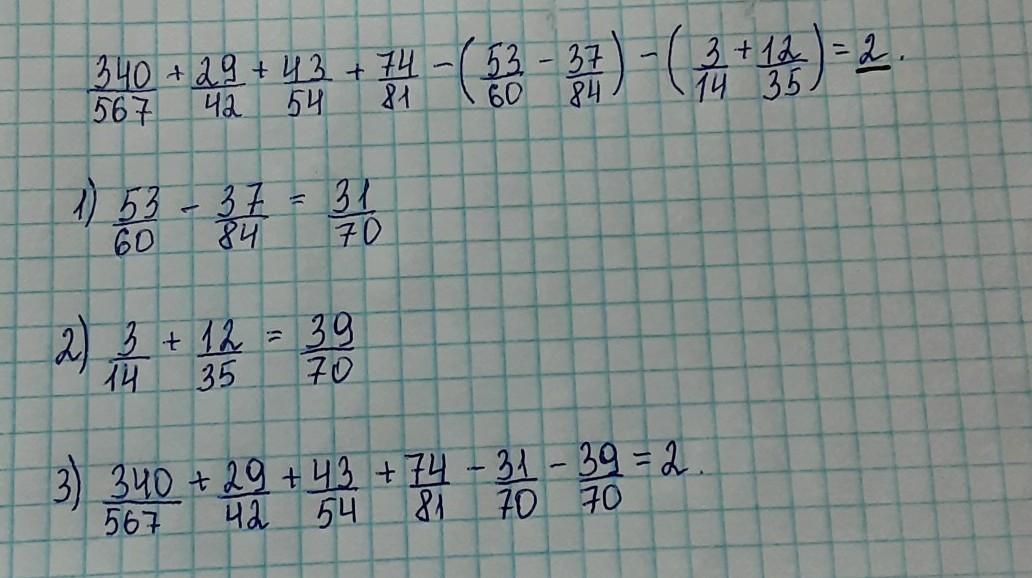 340/567 + 29/42 + 43/54 + 74/81 - (53/60 - 37/84) - (3/14 + 12/35) = 2.
1) 53/60 - 37/84 = 31/70
2) 3/14 + 12/35 = 39/70
3) 340/567 + 29/42 + 43/54 + 74/81 - 31/70 - 39/70 = 2.